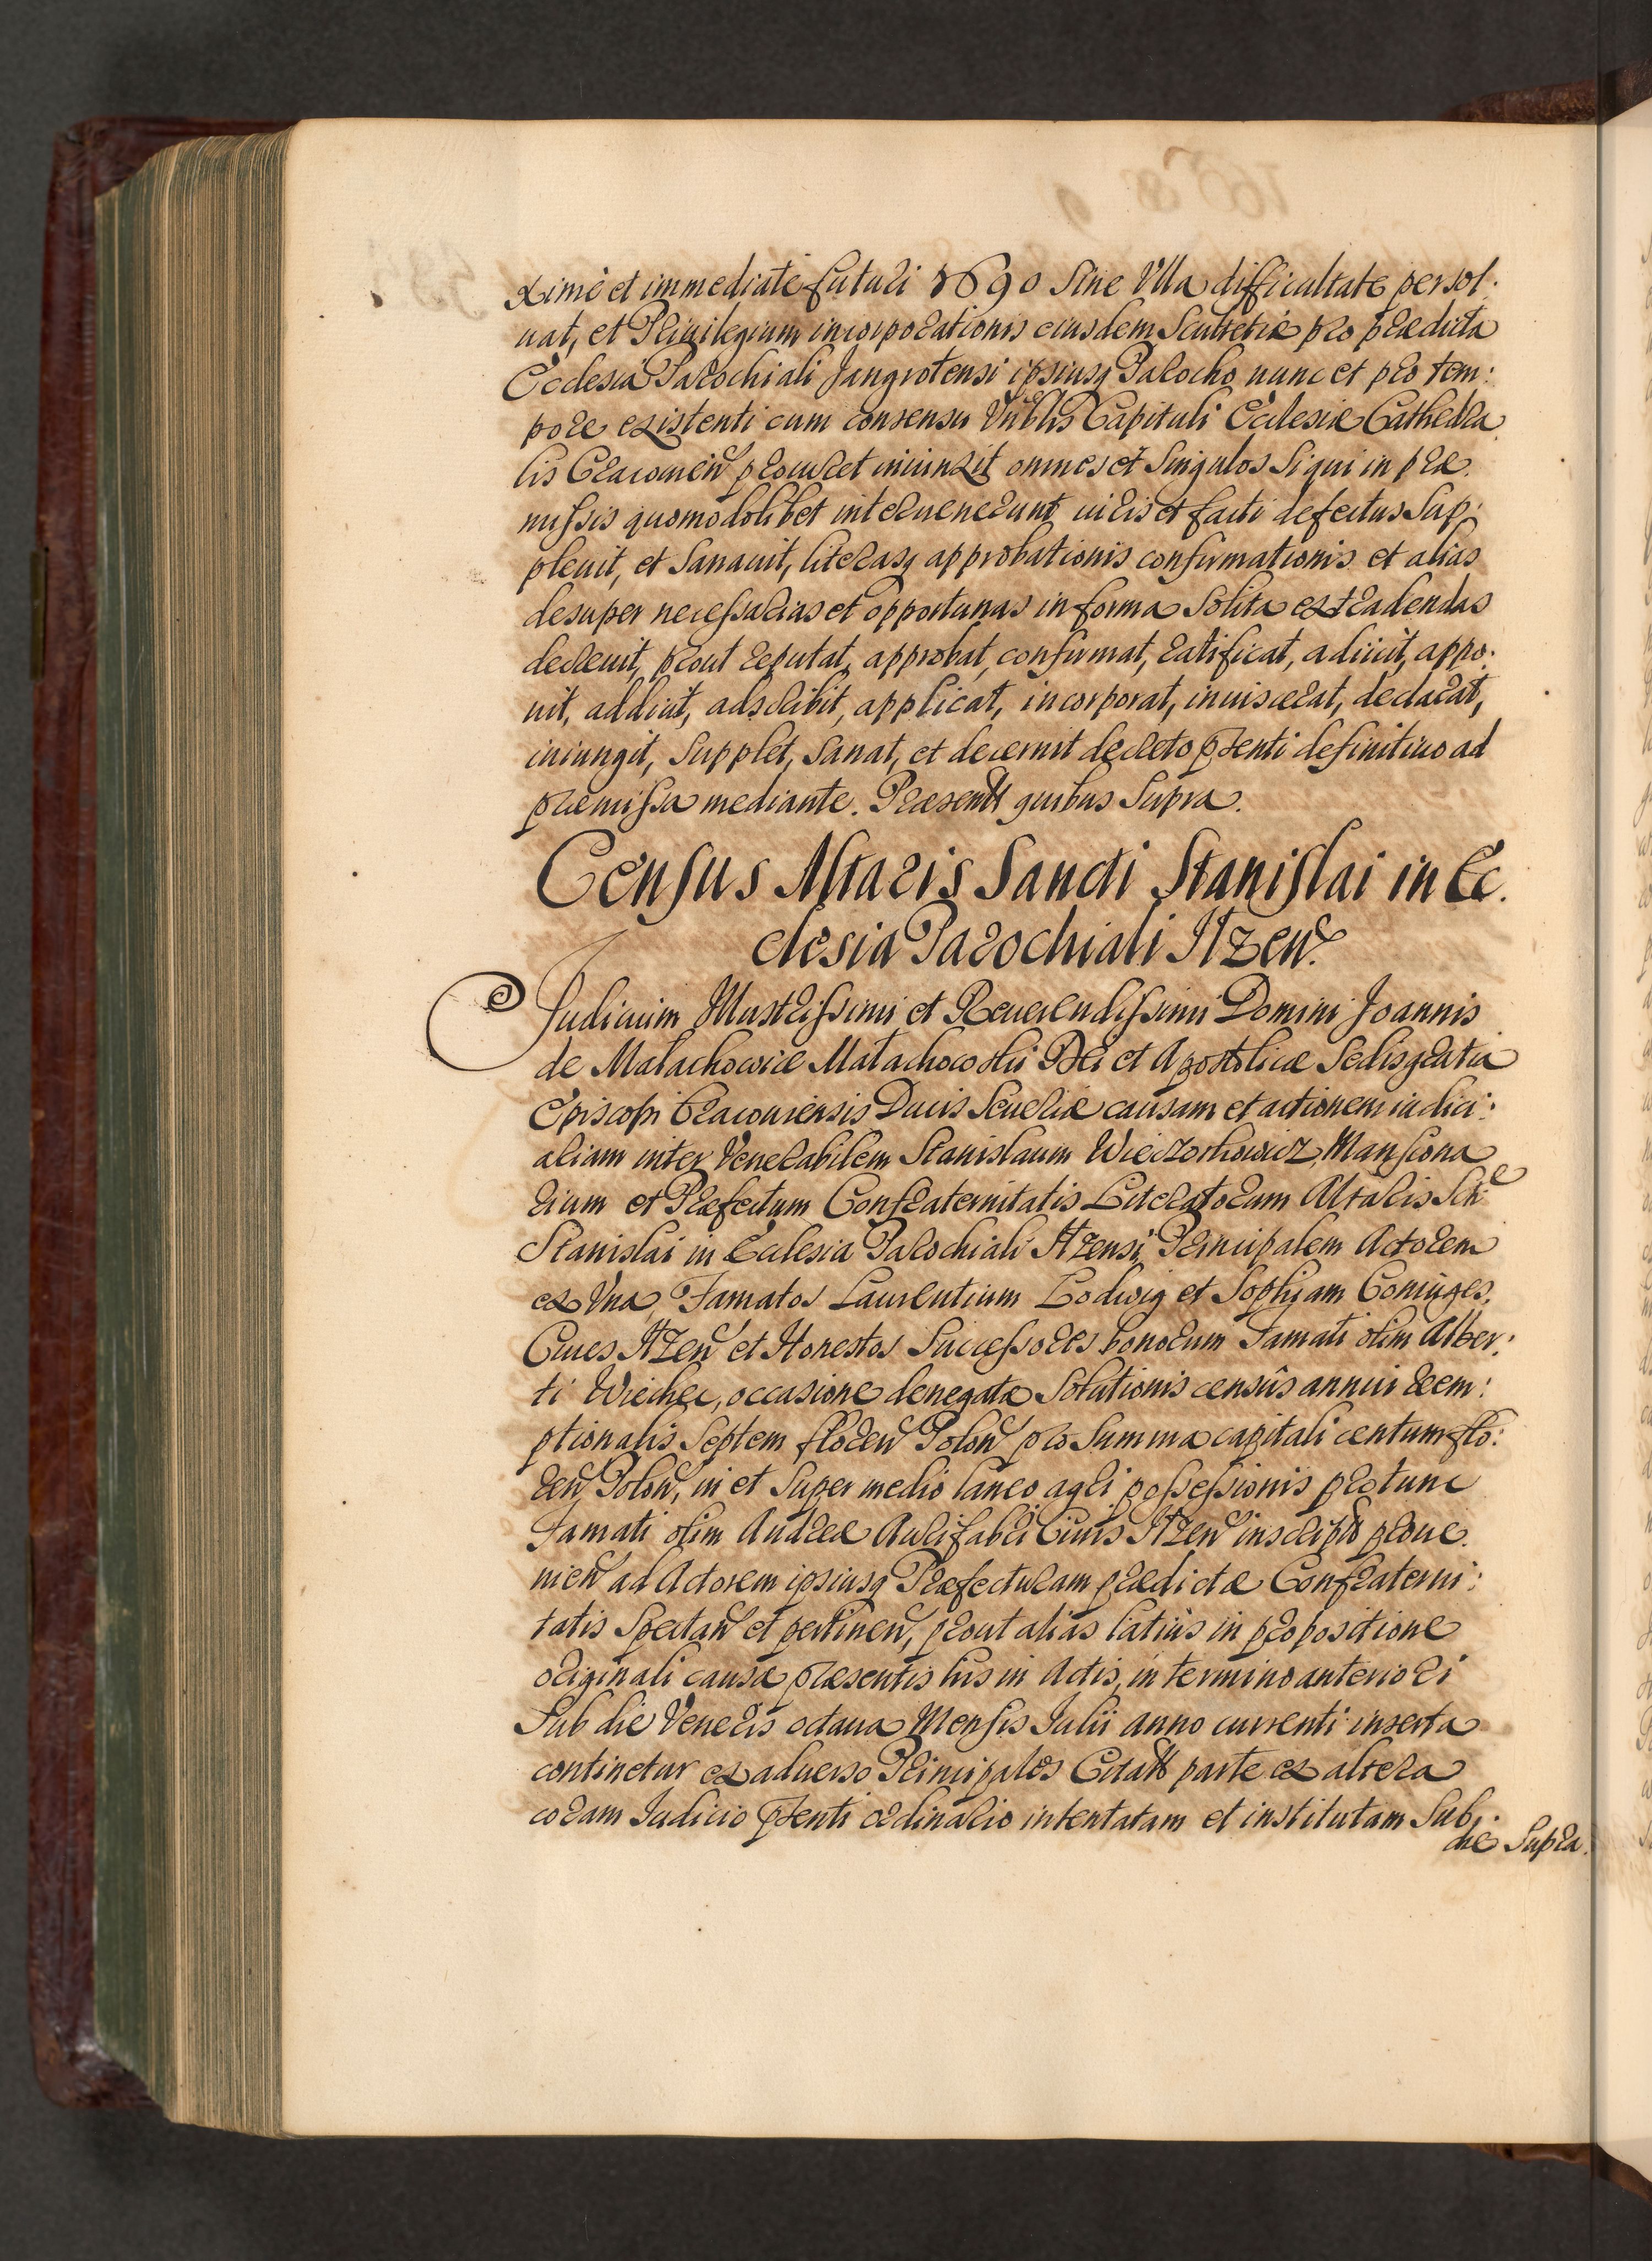 ximè et immediatè futuri 1690 Sine Vlla difficultate persol:
uat, et Priuilegium incorporationis eiusdem Scultetiæ pro prædicta
Ecclesia Parochiali Jangrotensi ipsiusq Parocho nunc et pro tem:
pore existenti cum consensu Vnblis Capituli Ecclesiæ Cathedra
lis Cracouien procuret iniunxit omnes et Singulos Siqui in præ.
missis quomodolibet interuenerunt iuris et facti defectus Sup:
pleuit, et Sanauit, literasq approbationis confirmationis et alias
desuper necessarias et opportunas in forma Solita extradendas
decreuit, prout reputat, approbat, confirmat, ratificat, adiicit, appo:
nit, addicit, adscribit, applicat, incorporat, inuiscerat, declarat,
iniungit, Supplet, Sanat, et decernit decreto pñenti definitiuo ad
præmissa mediante. Præsentt quibus Supra.
Census Altaris Sancti Stanislai in Ec.
clesia Parochiali Ilzen.
Judicium Illustrissimi et Reuerendissimi Domini Joannis
de Małachowice Małachowski Dei et Apostolicæ Sedis gratia
Episcopi Cracouiensis Ducis Seueriæ causam et actionem iudici:
ariam inter Venerabilem Stanislaum Wieczorkowicz, Mansiona
rium et Præfectum Confraternitatis Literatorum Altaris Scti
Stanislai in Ecclesia Parochiali Ilzensi, Principalem Actorem
ex Vna, Famatos Laurentium Lodwig et Sophiam Coniuges,
Ciues Ilzen et Honestos Successores bonorum Famati olim Alber:
ti Wiechec, occasione denegatæ Solutionis censûs annui reem:
ptionalis Septem floren Polon pro Summa capitali centum flo:
ren Polon, in et Super medio laneo agri possessionis protunc
Famati olim Andreæ Aurifabri Ciuis Ilzen inscript proue.
nien ad Actorem ipsiusq Præfecturam prædictæ Confraterni:
tatis Spectan et pertinen, prout alias latius in propositione
originali causæ præsentis his in Actis, in termino anteriori
Sub die Veneris octaua Mensis Julii anno currenti inserta
continetur ex aduerso Principales Citatt parte ex altera
coram Judicio pñenti ordinario intentatam et institutam Sub
die Supra.